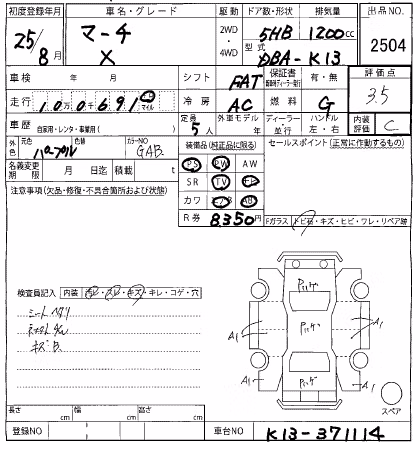 初度登録年月 車名・グレード 駆動 ドア数・形状 排気量 出品NO
25/8月 マーチ X 2WD・4WD 5HB 1200cc 2504
型式 DBA-K13
車検 年 月 シフト FAT 保証書 有・無 評価点 3.5
走行 10万0千691 km マイル 冷房 AC 燃料 G
車歴 自家用・レンタ・事業用( ) 定員 5人 外車モデル 年 ディーラー・並行 ハンドル 左・右 内装評価 C
外色 元色 パープル 色替 カラーNO GAB
装備品(純正品に限る) セールスポイント(正常に作動するもの)
名義変更期限 月 日迄 積載 t
PS PW AW
SR TV
カワ ナビ AB
R券 8350円
注意事項(欠品・修復・不具合箇所および状態)
Fガラス トビ石・キズ・ヒビ・ワレ・リペア跡
検査員記入 内装 ・スレ・キズ・キレ・コゲ・穴
シートヘタリ
キズB
A1 A1 A1 A1
スペア
長さ cm 幅 cm 高さ cm
登録NO 車台NO K13-371114